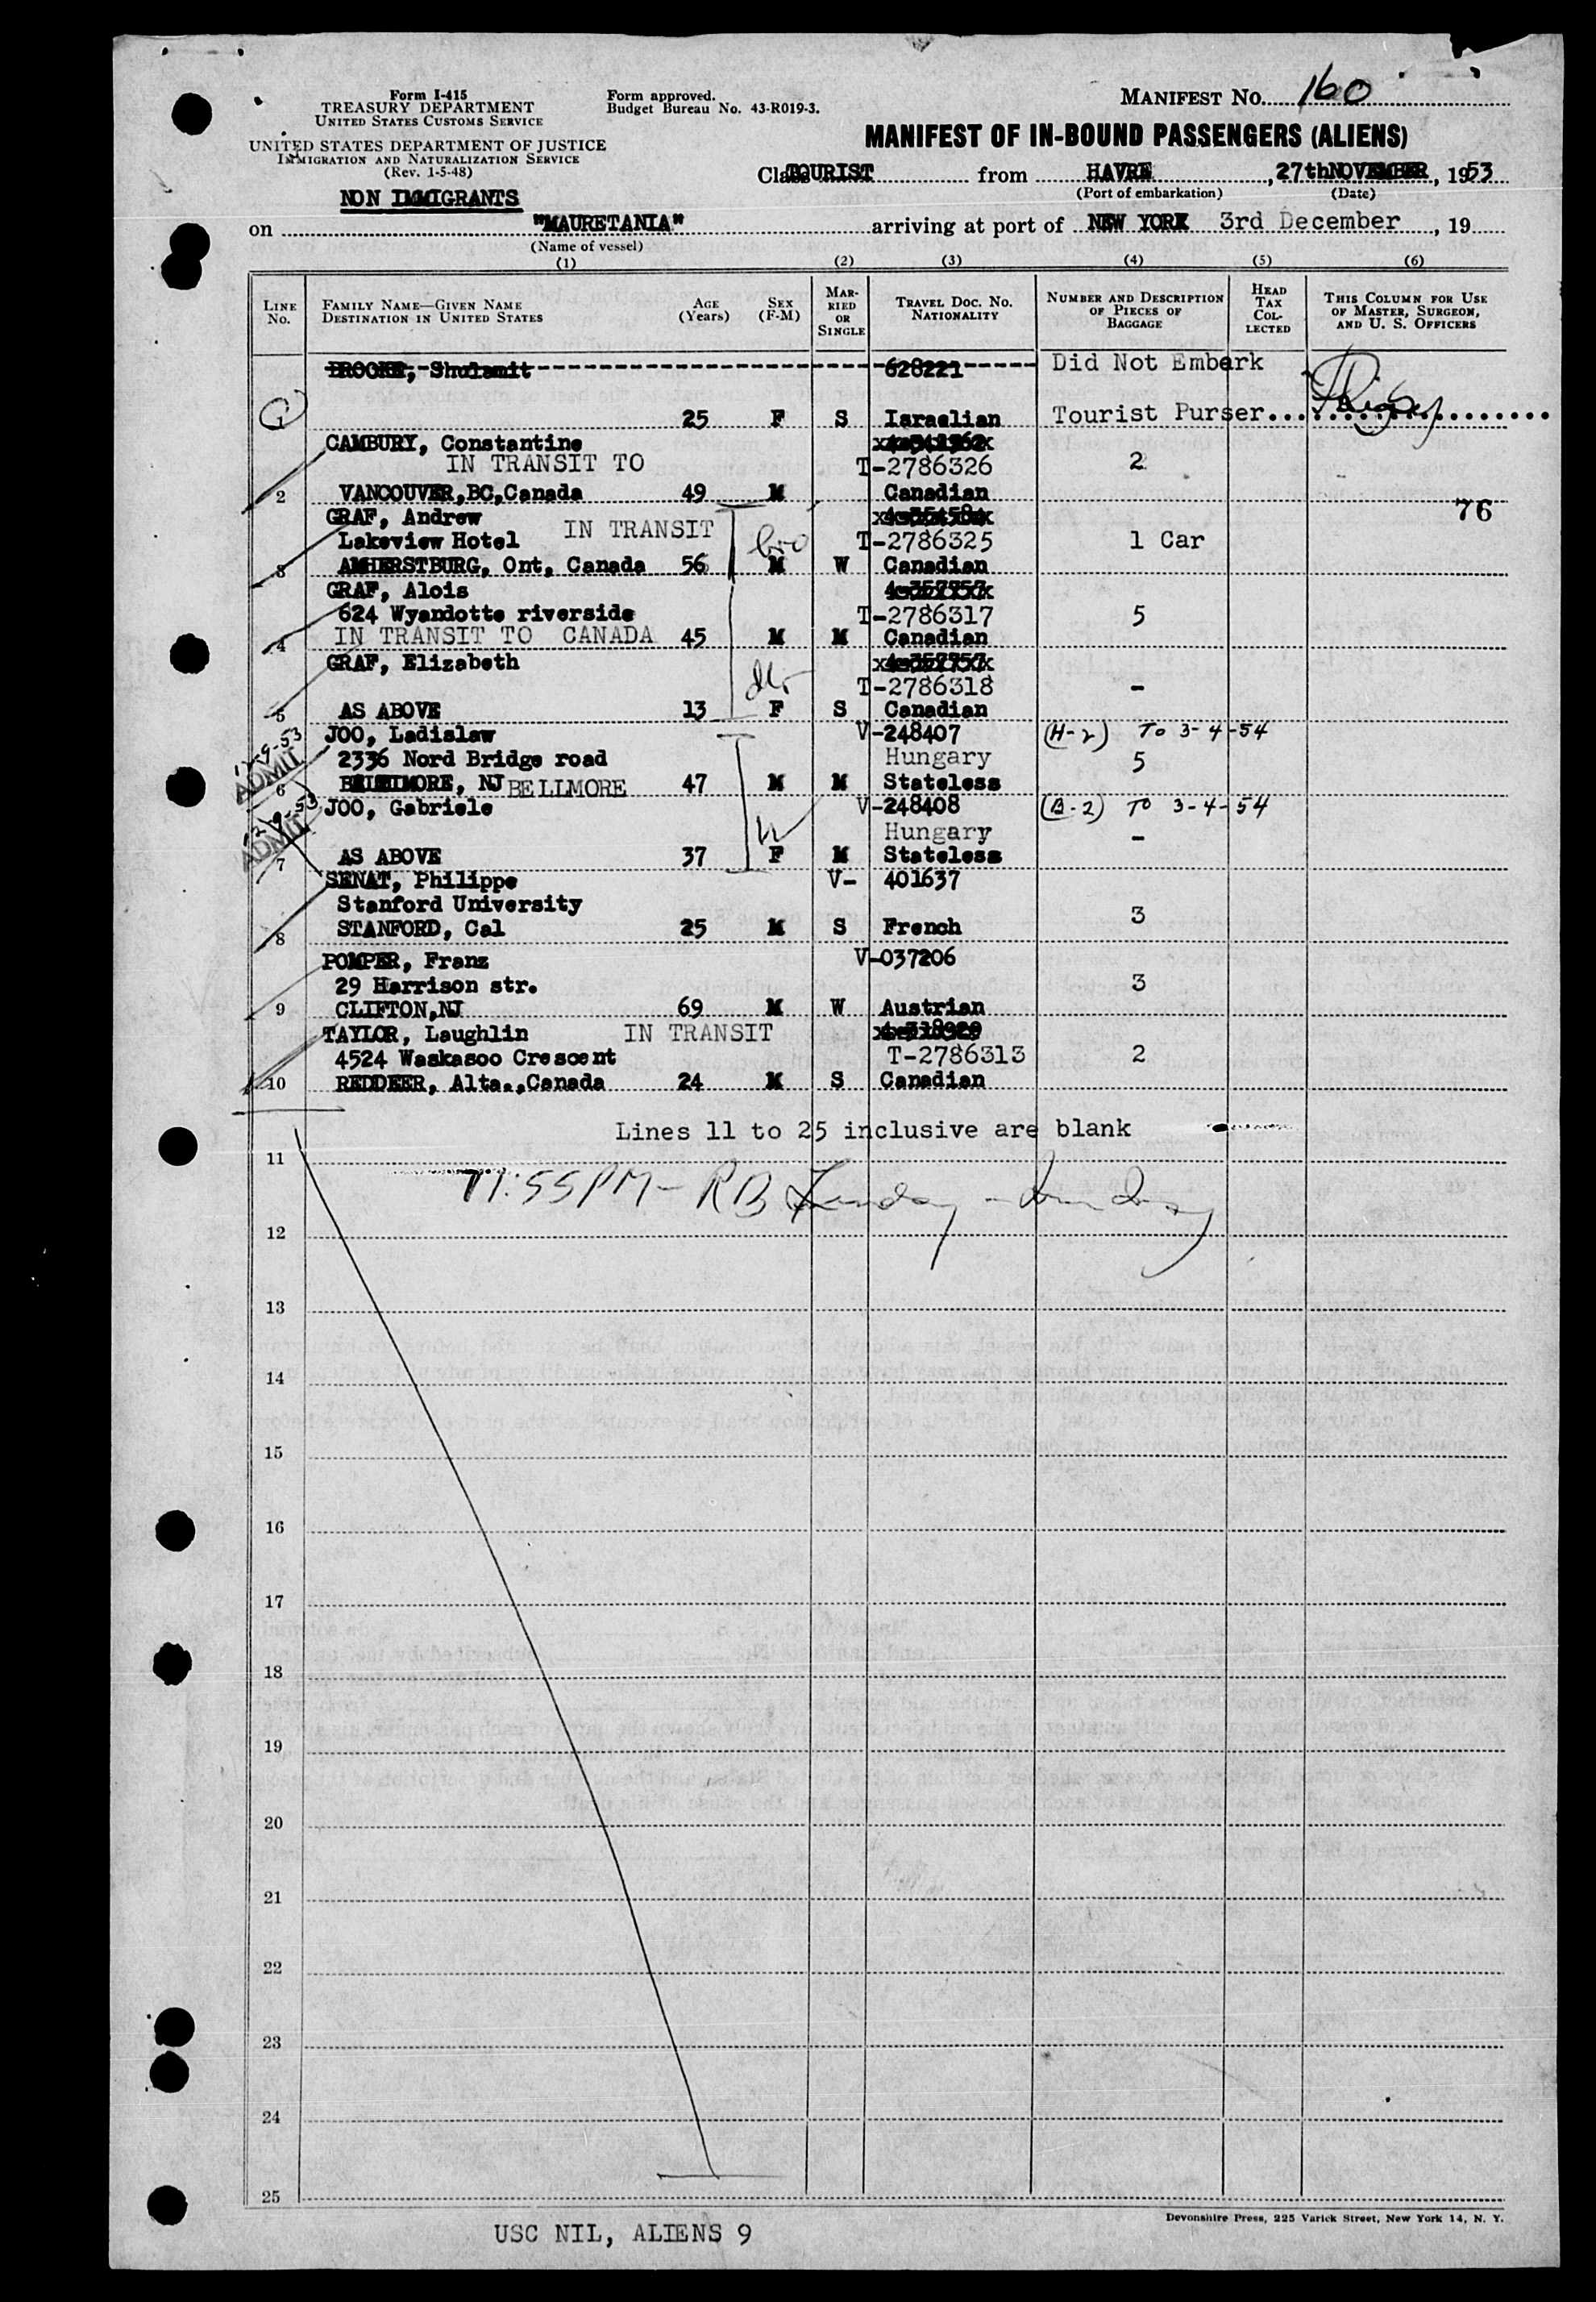 Form I-415
TREASURY DEPARTMENT
UNITED STATES CUSTOMS SERVICE
UNITED STATES DEPARTMENT OF JUSTICE
IMMIGRATION AND NATURALIZATION SERVICE
(Rev. 1-5-48)
NON IMMIGRANTS
Form approved.
Budget Bureau No. 43-R019-3.
MANIFEST NO. 160
MANIFEST OF IN-BOUND PASSENGERS (ALIENS)
Class TOURIST from HAVRE, 27th NOVEMBER, 1953
(Port of embarkation) (Date)
on "MAURETANIA" arriving at port of NEW YORK 3rd December, 19
(Name of vessel)
(1) (2) (3) (4) (5) (6)
LINE NO. FAMILY NAME—GIVEN NAME DESTINATION IN UNITED STATES AGE (Years) SEX (F-M) MARRIED OR SINGLE TRAVEL DOC. NO. NATIONALITY NUMBER AND DESCRIPTION OF PIECES OF BAGGAGE HEAD TAX COLLECTED THIS COLUMN FOR USE OF MASTER, SURGEON, AND U. S. OFFICERS
BROOKE, Shulamit 628221 Did Not Embark
1 25 F S Israelian Tourist Purser
CAMBURY, Constantine
IN TRANSIT TO T-2786326 2
2 VANCOUVER, BC, Canada 49 M Canadian
76
GRAF, Andrew
Lakeview Hotel IN TRANSIT bro T-2786325 1 Car
3 AMHERSTBURG, Ont, Canada 56 M W Canadian
GRAF, Alois
624 Wyandotte riverside T-2786317 5
4 IN TRANSIT TO CANADA 45 M M Canadian
GRAF, Elizabeth
T-2786318 -
5 AS ABOVE 13 F S Canadian
JOO, Ladislaw V-248407 (H-2) To 3-4-54
2336 Nord Bridge road Hungary 5
6 NJ BELLMORE 47 M M Stateless
12-9-53 ADMIT
JOO, Gabriele V-248408 (B-2) TO 3-4-54
Hungary -
7 AS ABOVE 37 W F M Stateless
12-9-53 ADMIT
SENAT, Philippe V- 401637
Stanford University 3
8 STANFORD, Cal 25 M S French
POMPER, Franz V-037206
29 Harrison str. 3
9 CLIFTON, NJ 69 M W Austrian
TAYLOR, Laughlin IN TRANSIT
4524 Waskasoo Crescent T-2786313 2
10 REDDEER, Alta., Canada 24 M S Canadian
Lines 11 to 25 inclusive are blank
11
11:55PM - RB
12
13
14
15
16
17
18
19
20
21
22
23
24
25
Devonshire Press, 225 Varick Street, New York 14, N. Y.
USC NIL, ALIENS 9